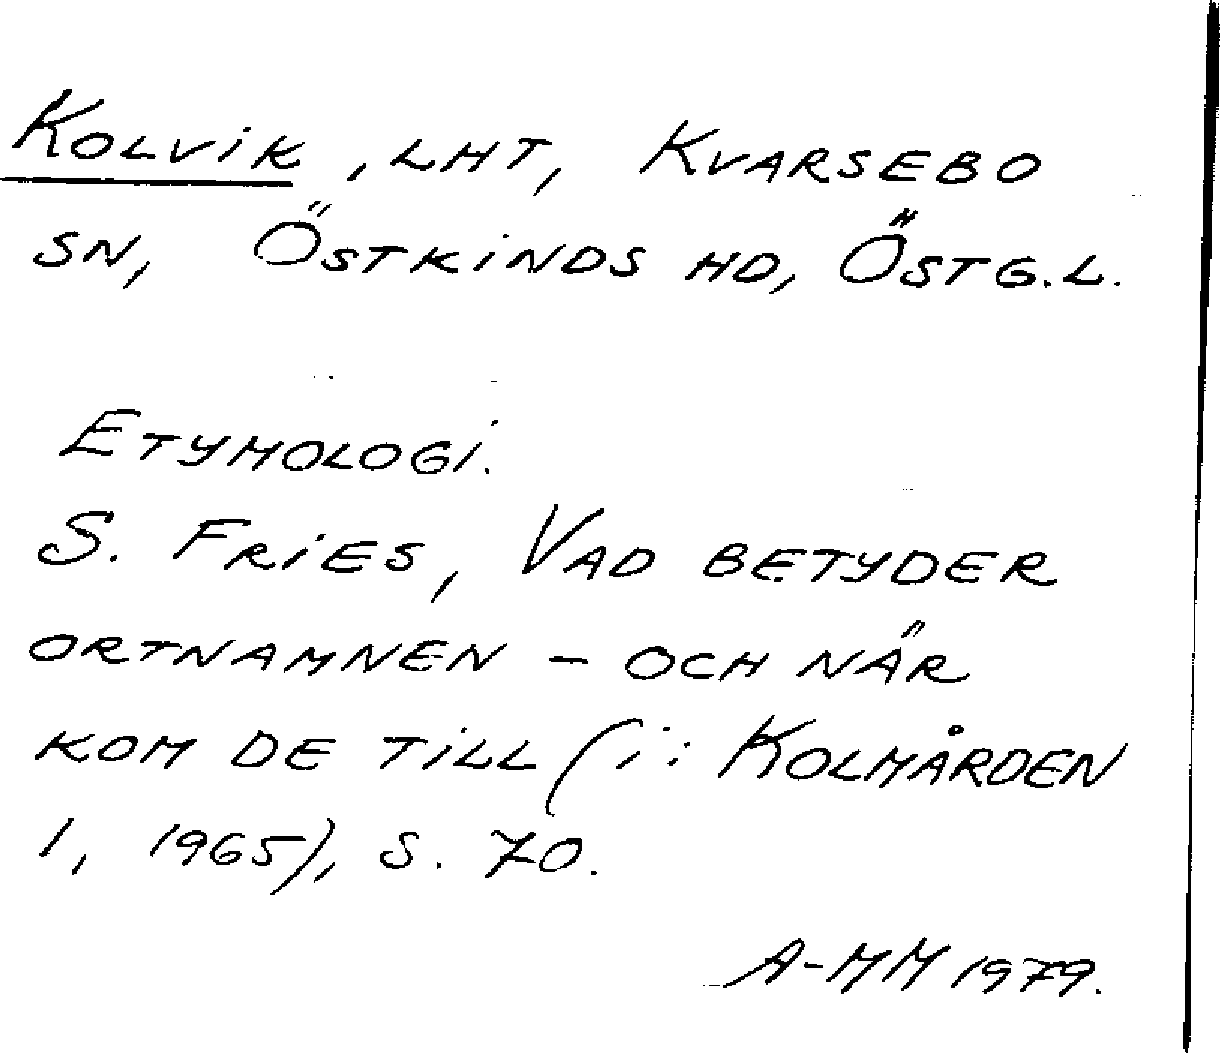 Kolvik, lht, Kvarsebo
sn, Östkinds hd, Östg.l.
Etymologi.
S. Fries, Vad betyder
ortnamnen - och när
kom de till (i: Kolmården
1, 1965), s. 70.
A-MM 1979.